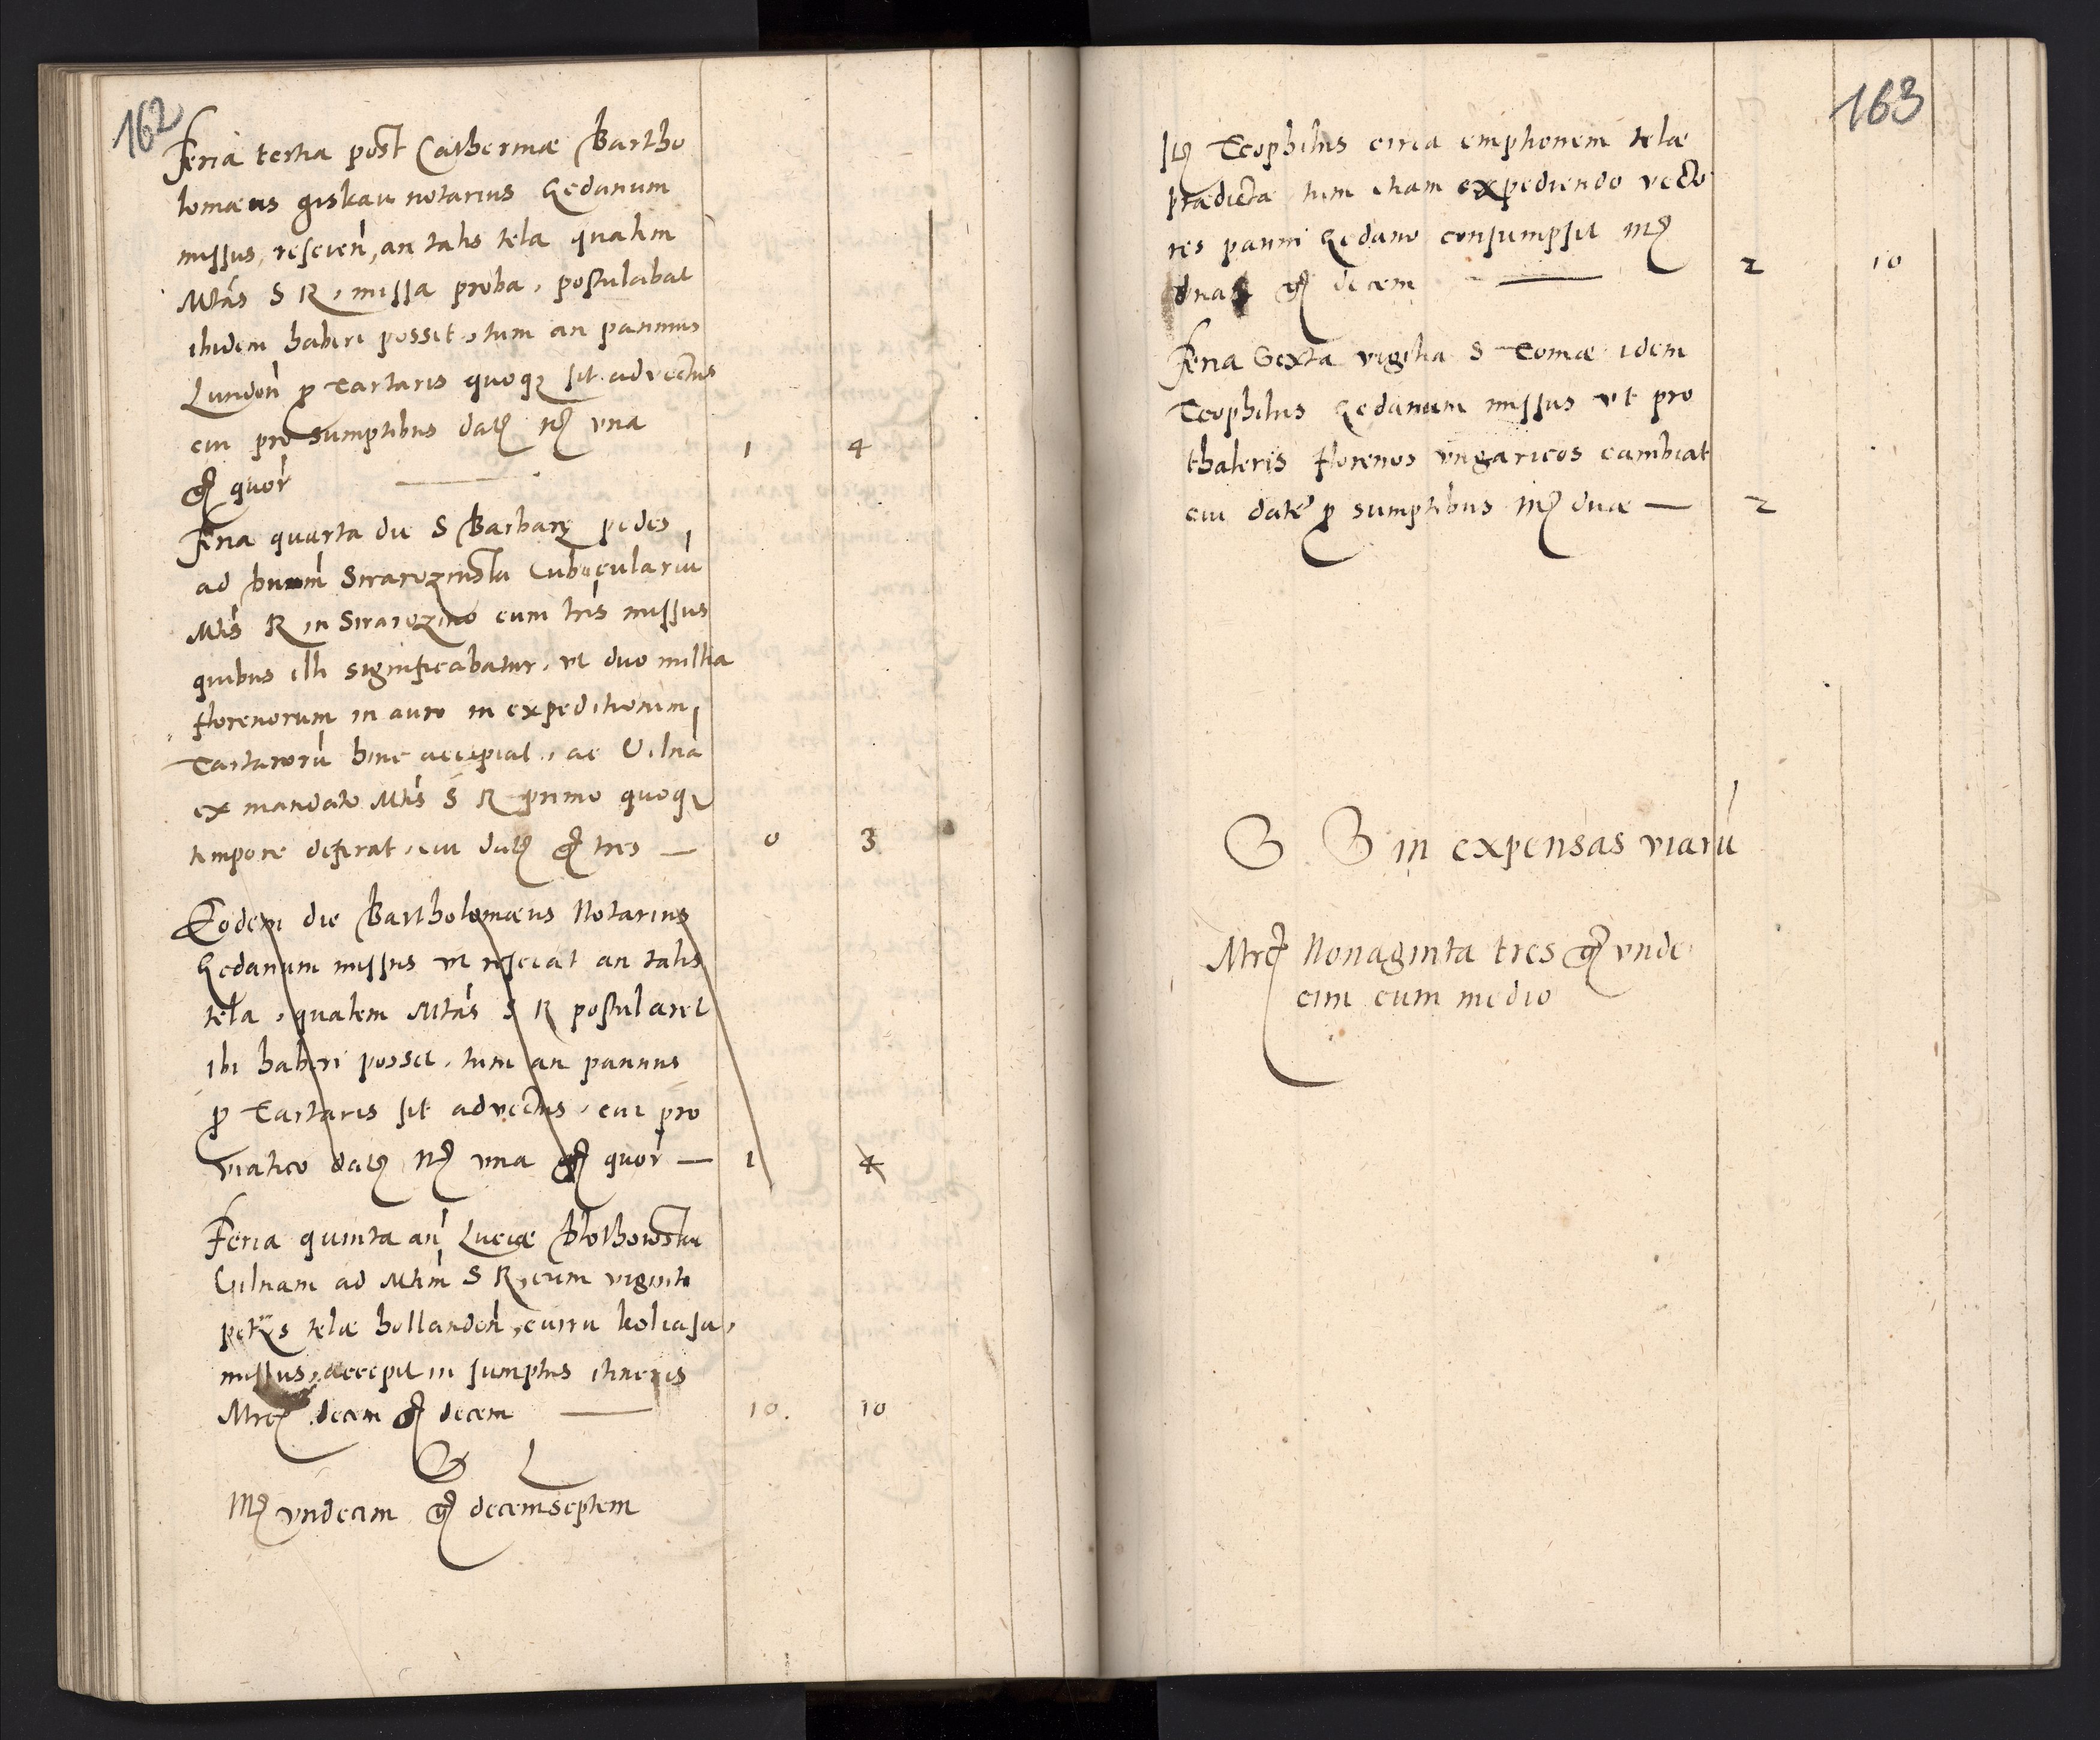 162
Feria tertia post Catherinæ Bartho
lomæus giskau notarius Gedanum
missus, rescien, an talis tela qualem
Mtas S R, missa proba, postulabat
ibidem haberi possit, tum an pannus
Lundon p Tartaris quoqz sit advectus
cui pro sumptibus dats Mr una 1 4
gr quor
Feria quarta die S Barbarę pedes
ad Sirarozinsky Cubiculariu
Mtis R in Sirarozino cum lris missus
quibus illi significabatur, ut duo millia
florenorum in auro in expeditionem
Tartaroru hinc accipiat, ac Vilna
ex mandato Mtis S R primo quoqz
tempore deferat, cui dats gr tres — 0 3
Eodem die Bartholomæus Notarius
Gedanum missus ut resciat an talis
tela, qualem Mtas S R postularet
ibi haberi posset, tum an pannus
p Tartaris sit advectus, cui pro
viatico dats Mr una gr quor — 1 4
Feria quinta an Luciæ
Vilnam ad Mtem S R, cum viginti
petiis telæ hollanden, curru koliasu,
missus, accepit in sumptus itineris
Mrc decem gr decem — 10 10
S L
Mr undecim gr decemseptem
163
Its Teophilus circa emptionem telæ
prædictæ tum etiam expediendo vecto
res panni Gedano consumpsit Mr
duas gr decem — 2 10
Feria Sexta vigilia S Tomæ idem
Teophilus Gedanum missus ut pro
thaleris florenos ungaricos cambiat
cui datę p sumptibus Mr duæ — 2
S S in expensas viaru
Mrc Nonaginta tres gr unde
cim cum medio